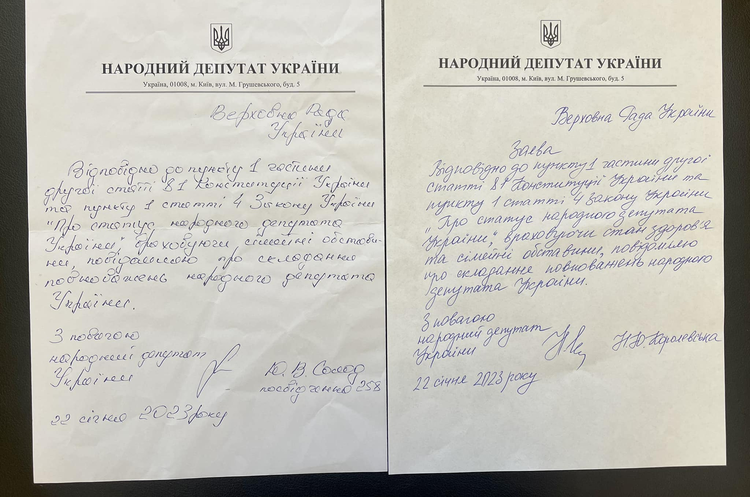 НАРОДНИЙ ДЕПУТАТ УКРАЇНИ
Україна, 01008, м. Київ, вул. М. Грушевського, буд. 5
Верховна Рада
України
Відповідно до пункту 1 частини
другої статті 81 Конституції України
та пункту 1 статті 4 Закону України
"Про статус народного депутата
України", враховуючи, сімейні обстави-
ни, повідомляю про складання
повноважень народного депутата
України.
З повагою
народний депутат
України
Ю. В Солод
посвідчення 258
22 січня 2023 року
НАРОДНИЙ ДЕПУТАТ УКРАЇНИ
Україна, 01008, м. Київ, вул. М. Грушевського, буд. 5
Верховна Рада України
Заява
Відповідно до пункту 1 частини другої
статті 81 Конституції України та
пункту 1 статті 4 Закону України
"Про статус народного депутата
України", враховуючи стан здоров'я
та сімейні обставини, повідомляю
про складання повноважень народного
депутата України.
З повагою
народний депутат
України
Н.Ю. Королевська
22 січня 2023 року